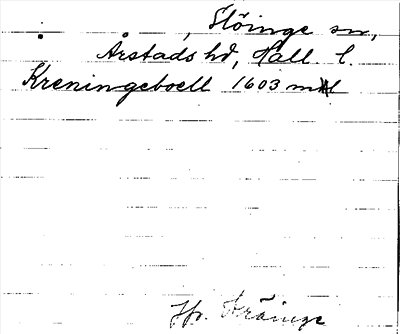 Slöinge sn,
Årstads hd, Hall. l.
Kreningeboell 1603 ml
Jfr. Kräinge